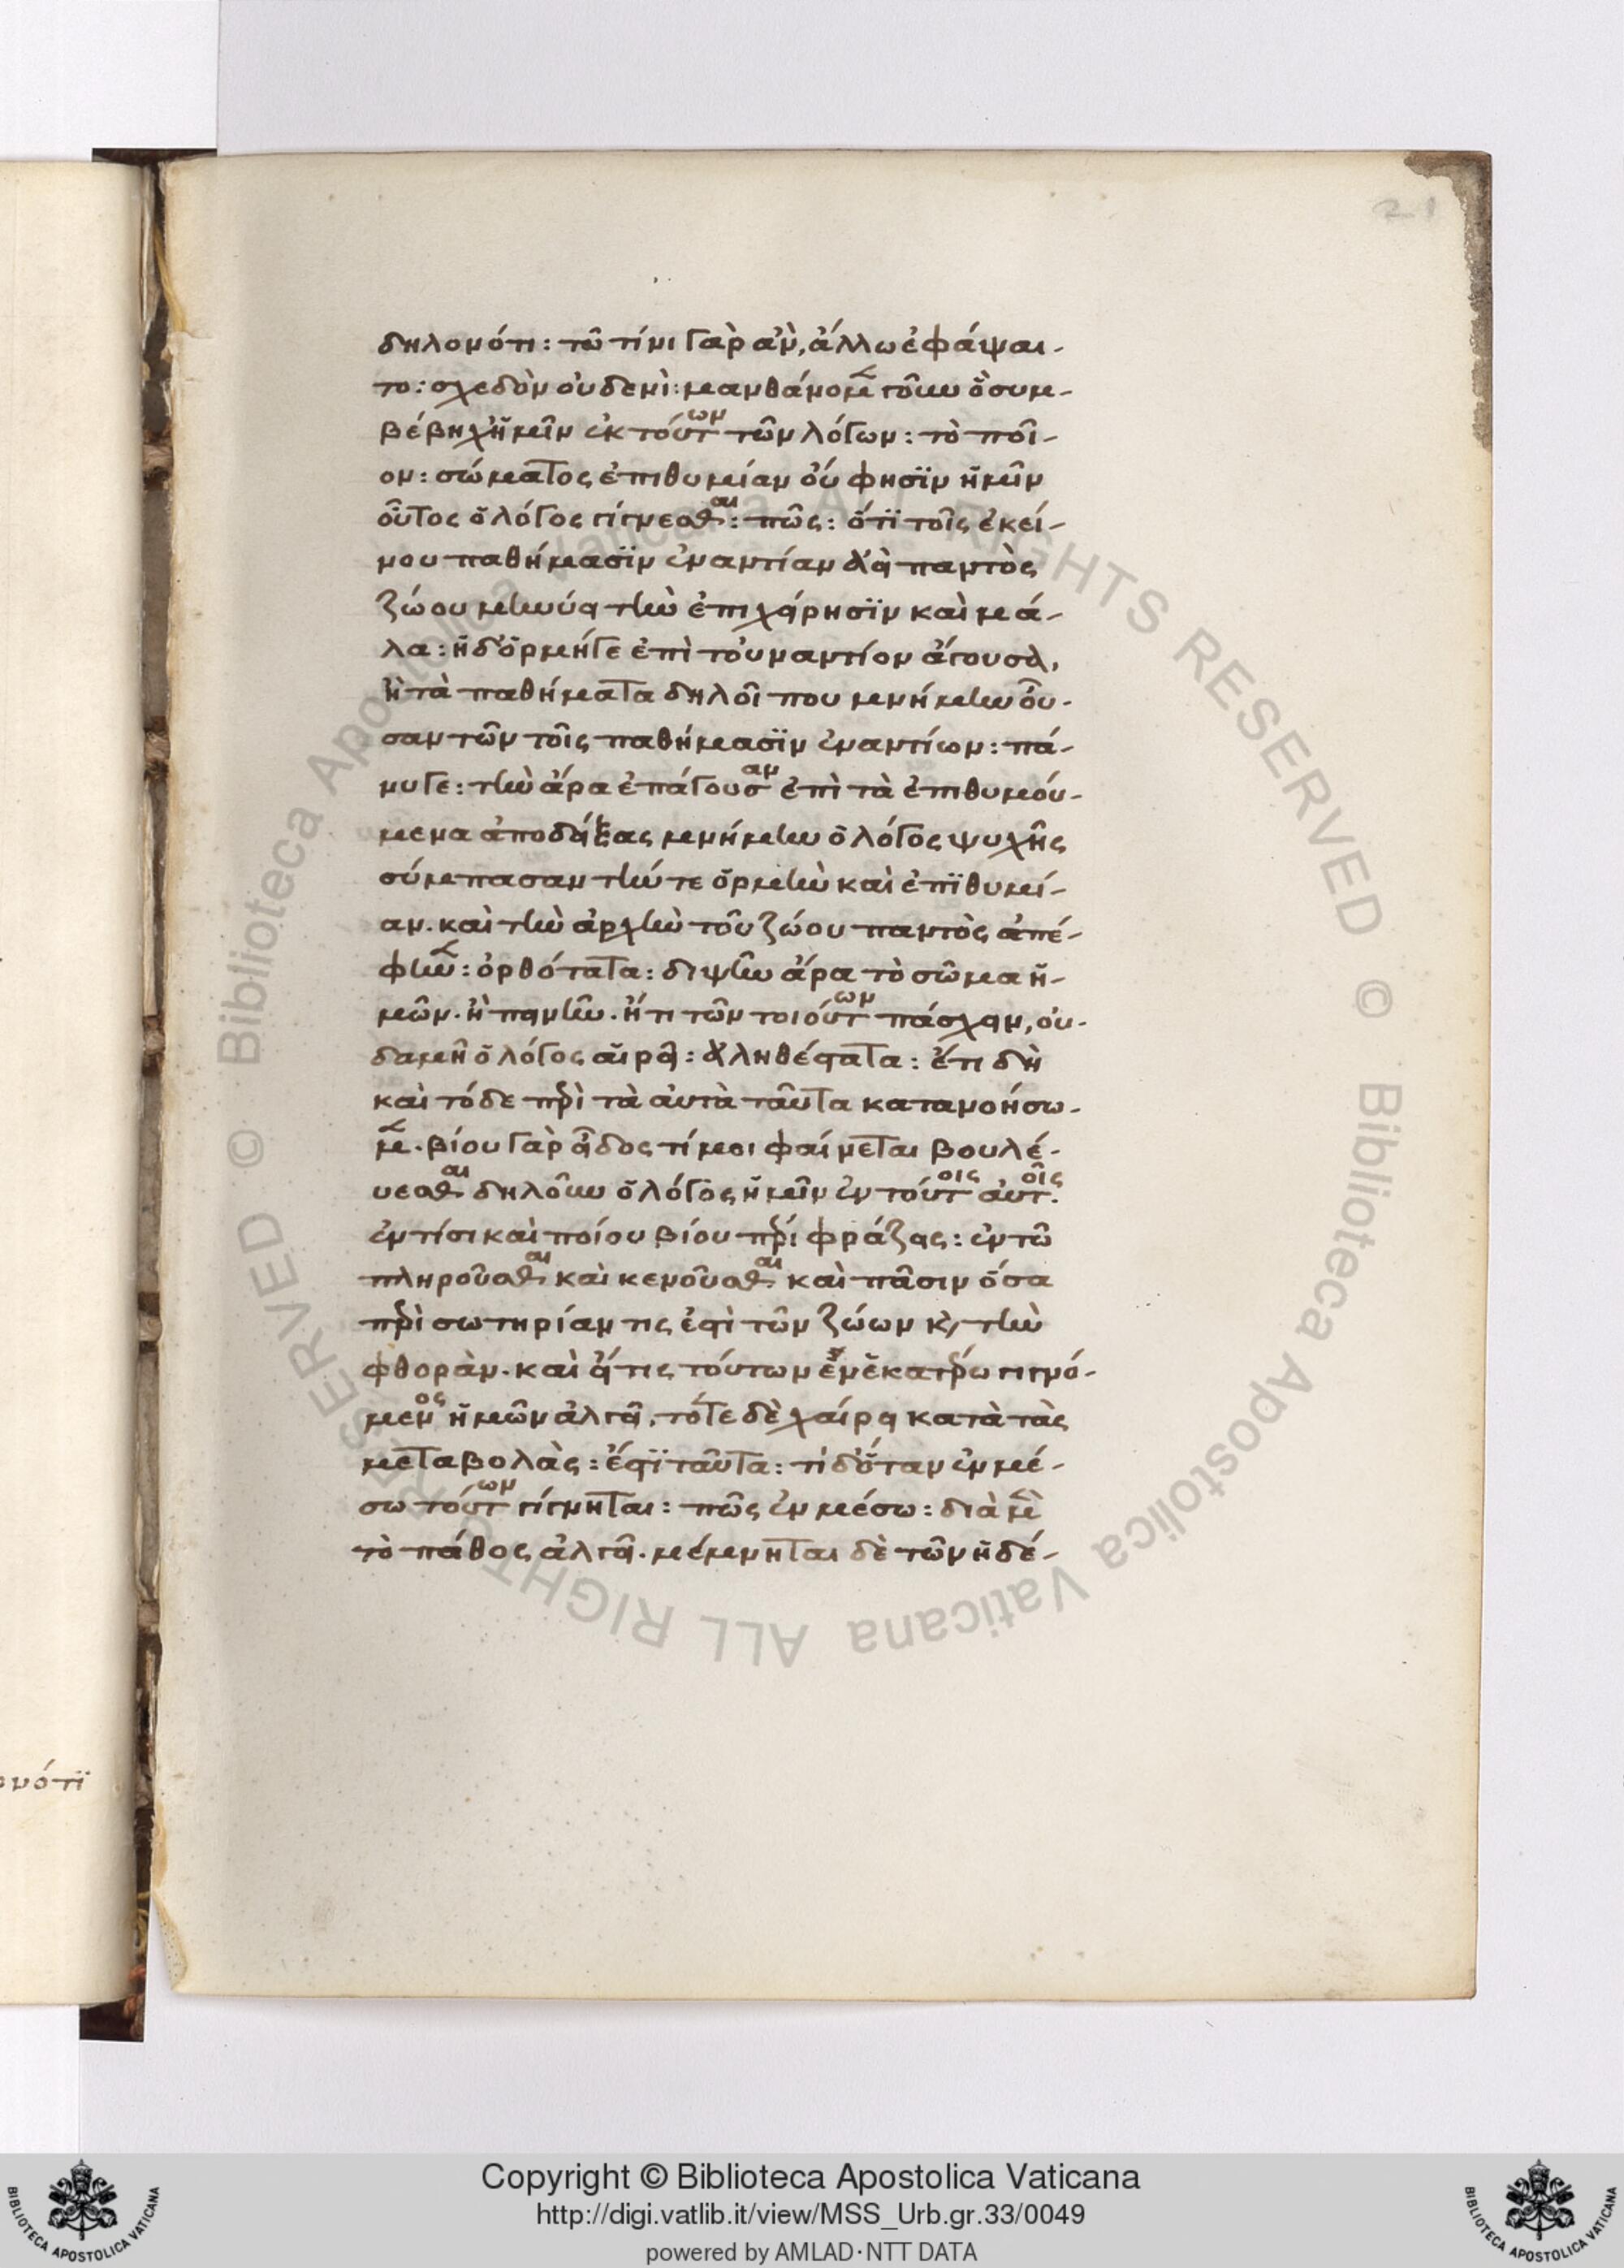 21
δηλονότι: τῶ τίνι γὰρ ἀν, ἄλλω ἐφάψαι-
το: σχεδὸν οὐδενὶ: μανθάνομεν οὖν ὃ συμ-
βέβηχ' ἡμῖν ἐκ τούτων τῶν λόγων: τὸ ποῖ-
ον: σώματος ἐπιθυμίαν οὔ φησϊν ἡμῖν
οὗτος ὁ λόγος γίγνεσθαι: πῶς: ὅτϊ τοῖς ἐκεί-
νου παθήμασϊν ἐναντίαν ἀεὶ παντὸς
ζώου μηνύει τὴν ἐπιχείρησϊν καὶ μά-
λα: ἡ δ' ὁρμήγε ἐπὶ τοὐναντίον ἄγουσα,
ἢ τὰ παθήματα δηλοῖ που μνήμην οὖ-
σαν τῶν τοῖς παθήμασϊν ἐναντίων: πά-
νυγε: τὴν ἄρα ἐπάγουσαν ἐπὶ τὰ ἐπιθυμού-
μενα ἀποδείξας μνήμην ὁ λόγος ψυχῆς
σύμπασαν τήν τε ὁρμὴν καὶ ἐπϊθυμί-
αν. καὶ τὴν ἀρχὴν τοῦ ζώου παντὸς ἀπέ-
φηνεν: ὀρθότατα: διψῆν ἄρα τὸ σῶμα ἡ-
μῶν. ἢ πεινῆν. ἤ τι τῶν τοιούτων πάσχειν, οὐ-
δαμῆ ὁ λόγος αἱρεῖ: ἀληθέστατα: ἔτι δὴ
καὶ τόδε περὶ τὰ αὐτὰ ταῦτα κατανοήσω-
μεν. βίου γὰρ εἶδος τί μοι φαίνεται βουλέ-
υεσθαι δηλοῦν ὁ λόγος ἡμῖν ἐν τούτοις αὐτοῖς.
ἐν τίσι καὶ ποίου βίου πέρι φράζεις: ἐν τῶ
πληροῦσθαι καὶ κενοῦσθαι καὶ πᾶσιν ὅσα
περὶ σωτηρίαν τις ἐστὶ τῶν ζώων κ, τὴν
φθορὰν. καὶ εἴ τις τούτων ἐν ἑκατέρω γιγνό-
μενος ἡμῶν ἀλγεῖ, τότε δὲ χαίρει κατὰ τὰς
μεταβολὰς: ἔστϊ ταῦτα: τί δ' ὅταν ἐν μέ-
σω τούτων γίγνηται: πῶς ἐν μέσω: διὰ μὲν
τὸ πάθος ἀλγεῖ. μέμνηται δὲ τῶν ἡδέ-
ονότϊ
Copyright © Biblioteca Apostolica Vaticana
http://digi.vatlib.it/view/MSS_Urb.gr.33/0049
powered by AMLAD·NTT DATA